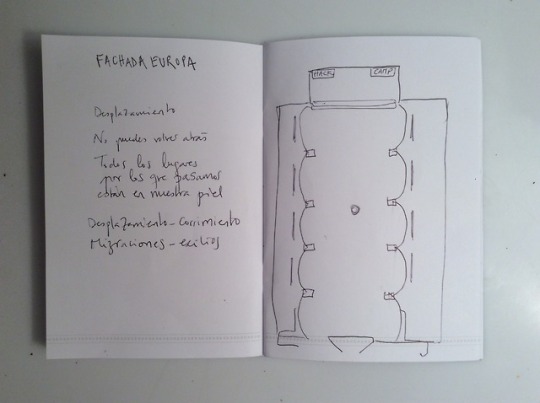 FACHADA EUROPA
Desplazamiento
No puedes volver atrás
Todos los lugares
por los que pasamos
están en nuestra piel
Desplazamiento - Corrimiento
Migraciones - exilios
CAMP